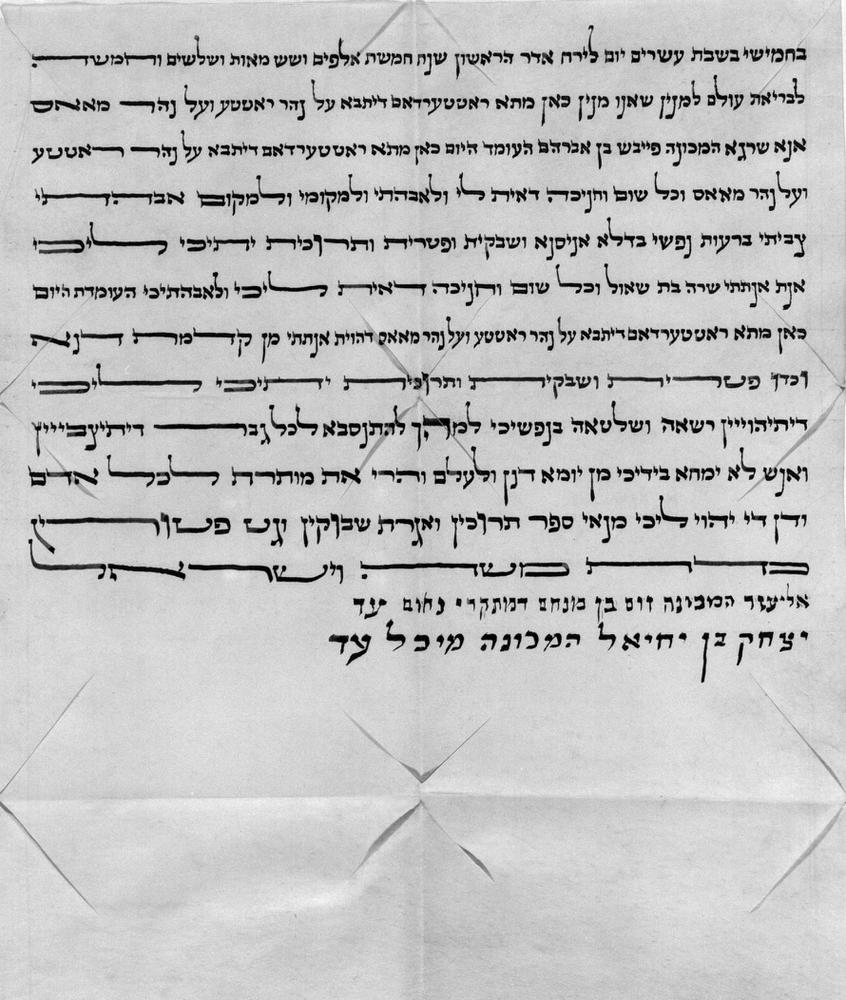 בחמישי בשבת עשרים יום לירח אדר הראשון שנת חמשת אלפים ושש מאות ושלשים וחמשה
לבריאת עולם למנין שאנו מנין כאן מתא ראטטערדאם דיתבא על נהר ראטטע ועל נהר מאאס
אנא שרגא המכונה פייבש בן אברהם העומד היום כאן מתא ראטטערדאם דיתבא על נהר ראטטע
ועל נהר מאאס וכל שום וחניכה דאית לי ולאבהתי ולמקומי ולמקום אבהדתי
צביתי ברעות נפשי בדלא אניסנא ושבקית ופטרית ותרוכית יתיכי ליכי
אנת אנתתי שרה בת שאול וכל שום וחניכה דאית ליכי ולאבהתיכי העומדת היום
כאן מתא ראטטערדאם דיתבא על נהר ראטטע ועל נהר מאאס דהוית אנתתי מן קדמת דנא
וכדן פטרית ושבקית ותרוכית יתיכי ליכי
דיתיהוייין רשאה ושלטאה בנפשיכי למהך להתנסבא לכל גבר דיתיצבייין
ואנש לא ימחא בידיכי מן יומא דנן ולעלם והרי את מותרת לכל אדם
ודן די יהוי ליכי מנאי ספר תרוכין ואגרת שבוקין וגט פטורין
כדת משה וישראל
אליעזר המכונה זוס בן מנחם דמתקרי נחום עד
יצחק בן יחיאל המכונה מיכל עד